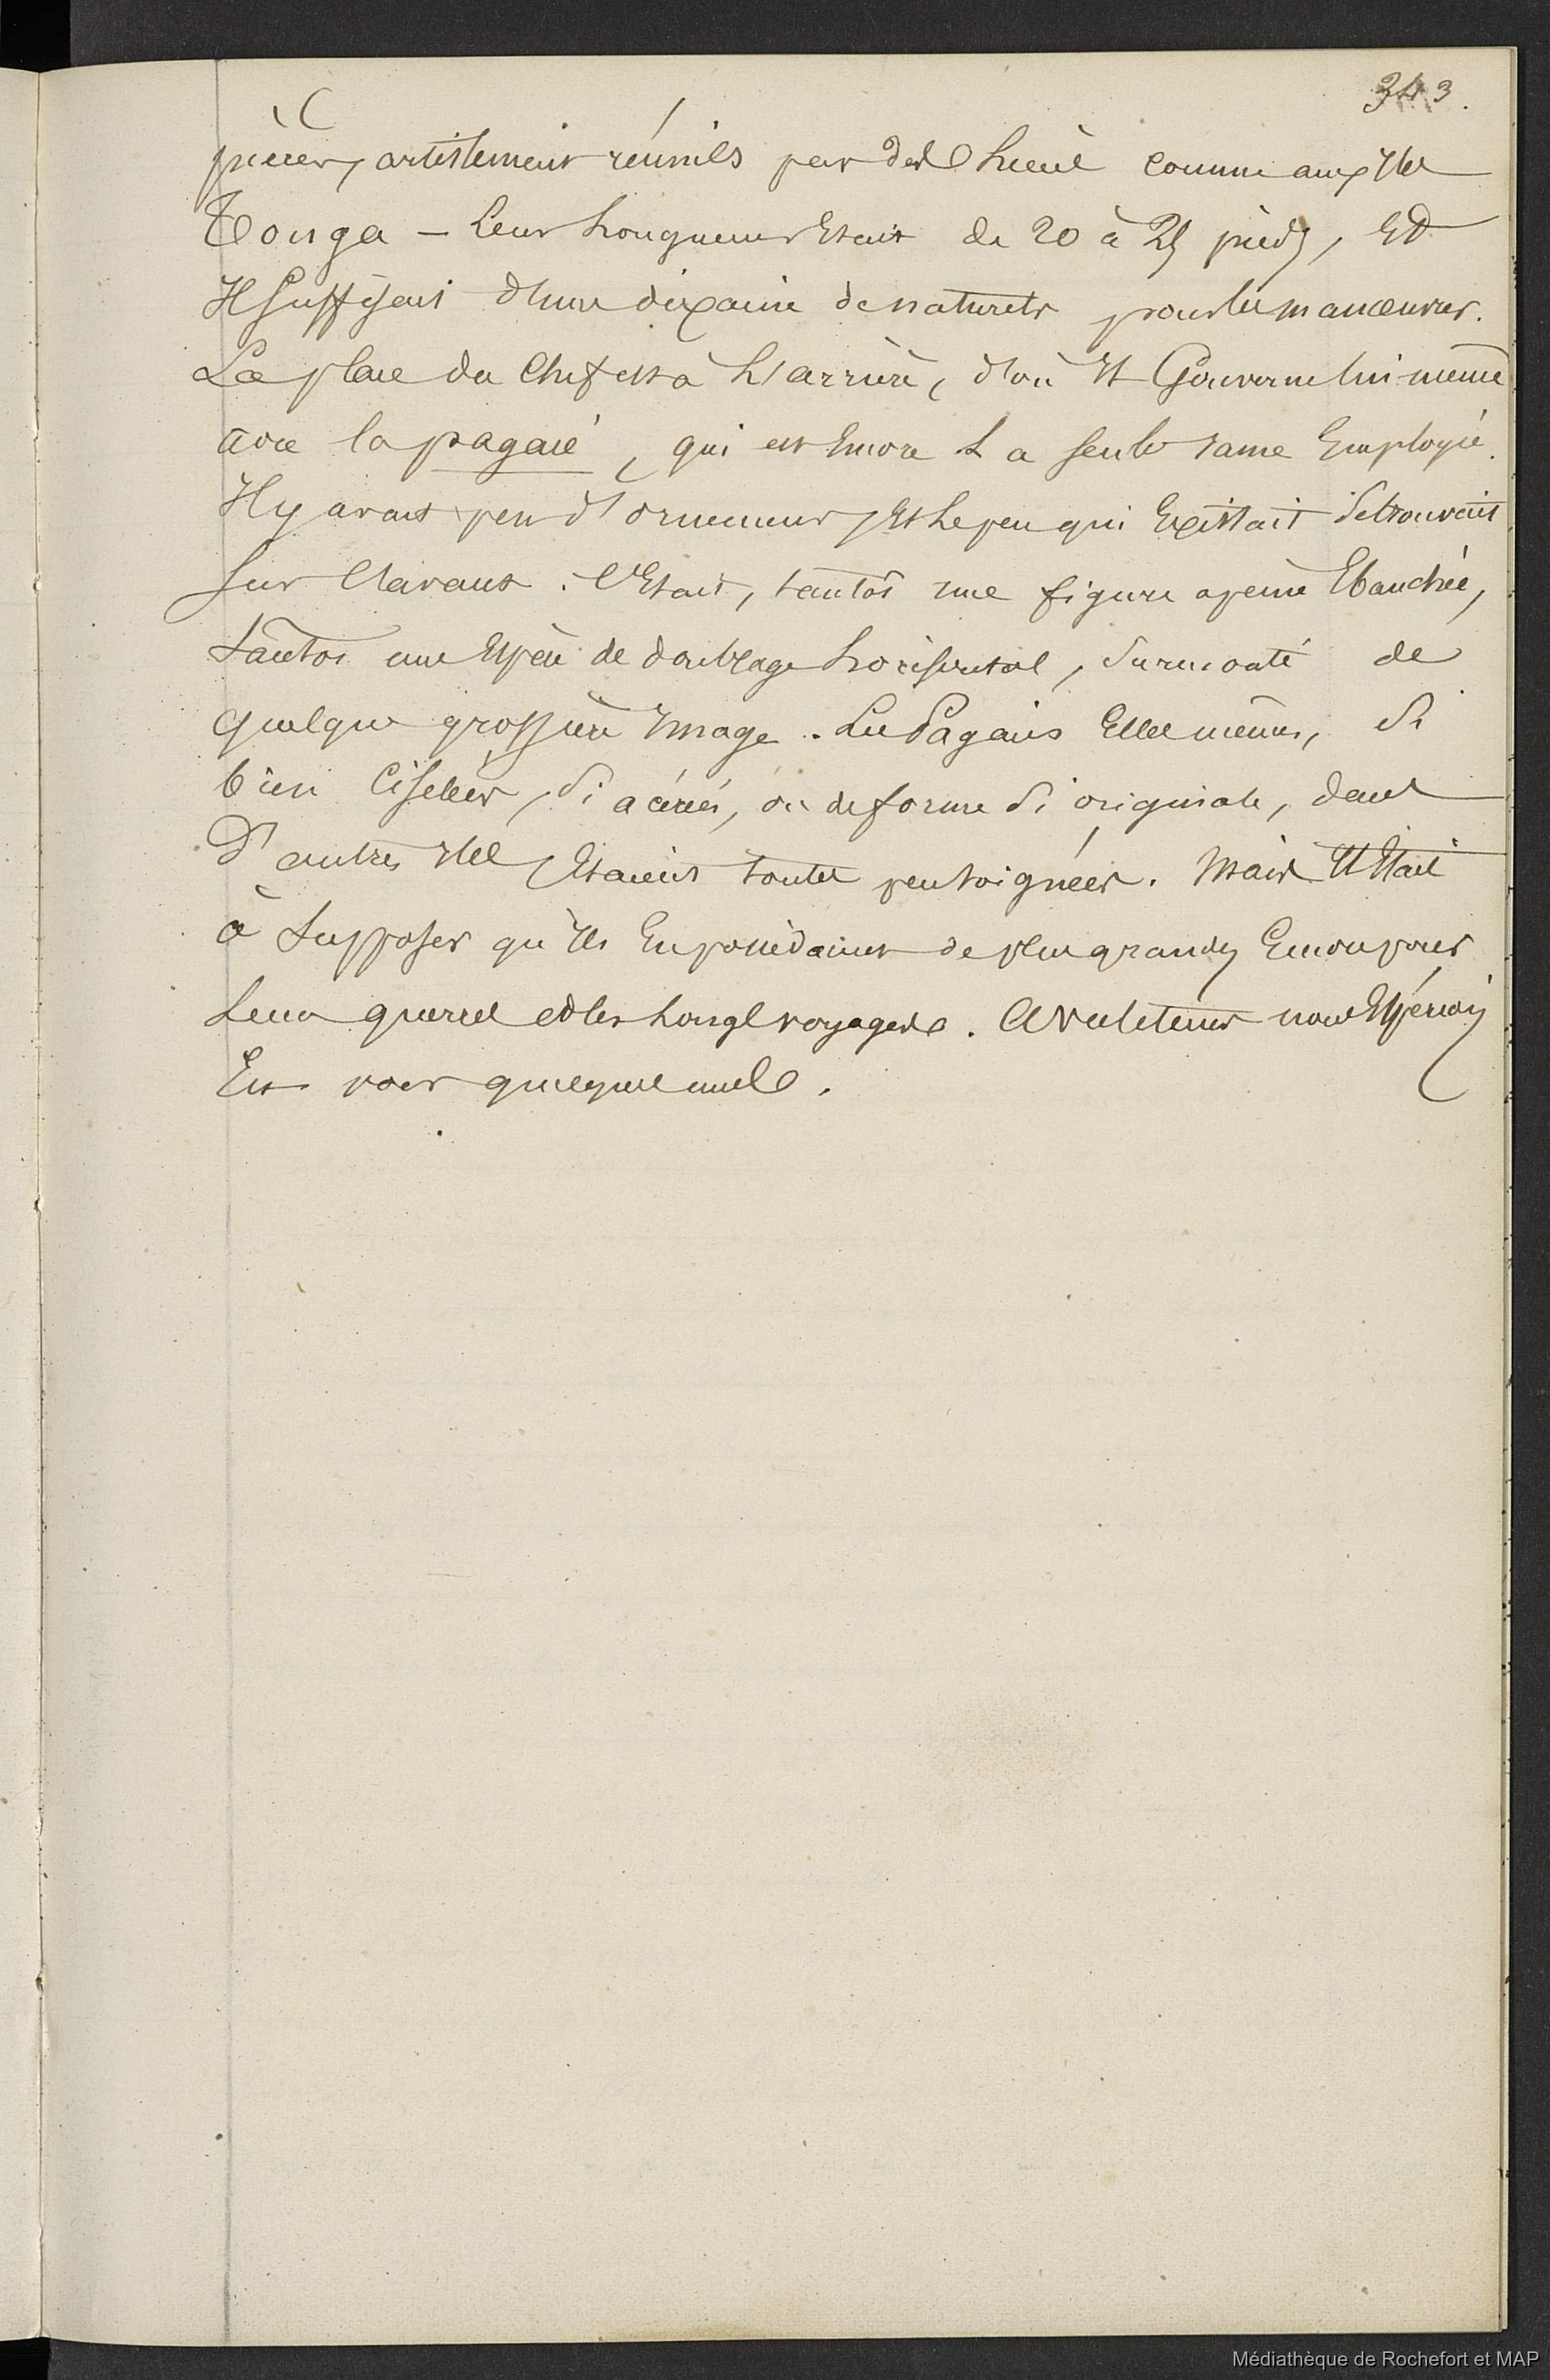 343.
pièces, artistement réunies par des liens comme aux Iles
Tonga – Leur Longueur Etait de 20 à 25 pieds, Et
Il Suffisait d'une dixaine de naturels pour les manœuvrer.
La place du Chef est à L'arrière, d'où Il Gouverne lui-même
avec la pagaie, qui est Encore La seule rame Employée.
Il y avait peu d'ornemens, Et Le peu qui Existait Se trouvait
Sur l'avant. C'Etait, tantôt une figure apeine Ebauchée,
tantot une Espèce de doublage horisontal, Surmonté de
quelque grossière Image. Les Pagaies Elles mêmes, Si
bien Ciselées, Si acérées, ou de forme Si originale, dans
D'autres Iles, Etaient toutes peu soignées. Mais Il Etait
à Supposer qu'Ils En possédaient de plus grandes Encore pour
Leurs guerres et les Longs voyages. nous Espérions
En voir quelques unes.
Médiathèque de Rochefort et MAP